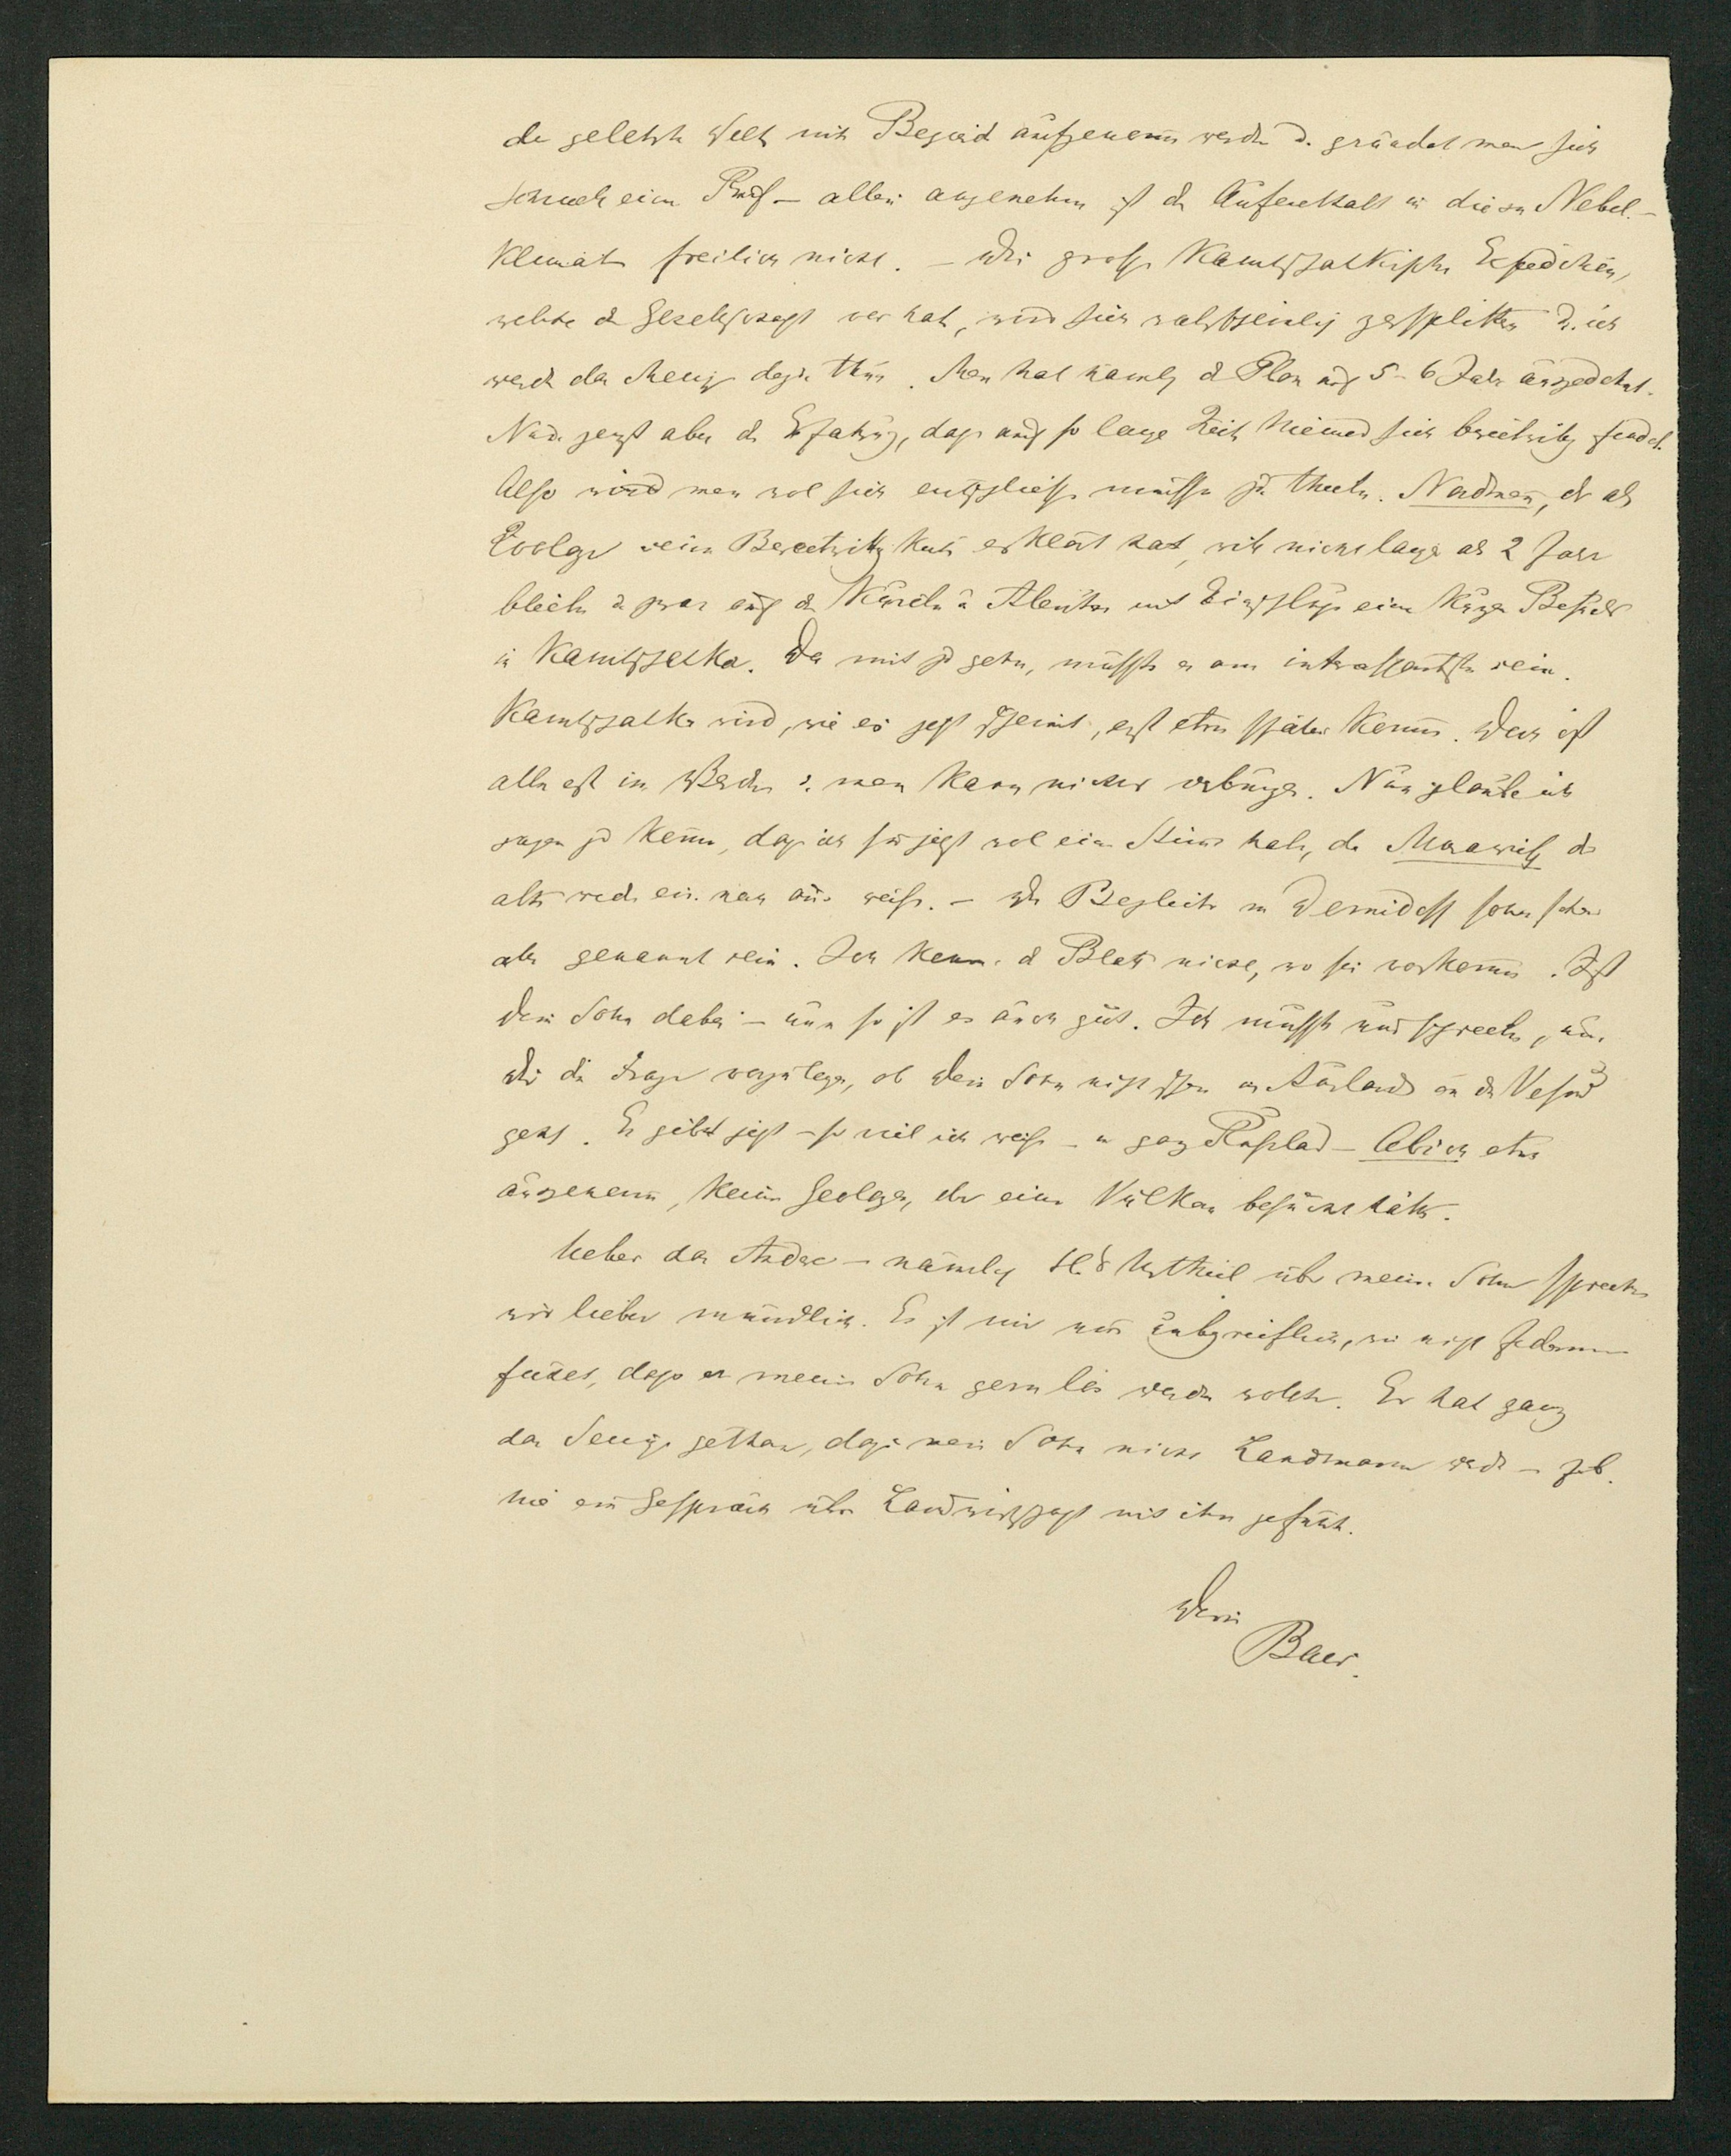 der gelehrten Welt mit Begierde aufgenommen werden u. gründet man sich
schnell einen Ruf – allein angenehm ist der Aufenthalt in diesem Nebel-
Klimate freilich nicht. – Die grosse Kamtschatkische Expedition,
welche die Gesellschaft vor hat, wird sich wahrscheinlich zersplittern u. ich
werde das Meinige dazu thun. Man hat nämlich den Plan auf 5–6 Jahre ausgedehnt.
Nun zeigt aber die Erfahrung, dass auf so lange Zeit Niemand sich bereitwillig findet.
Also wird man wol sich entschliessen müssen zu theilen. Nordmann, der als
Zoologe seine Bereitwilligkeit erklärt hat, will nicht länger als 2 Jahre
bleiben u. zwar auf den Kurilen u. Aleuten mit Einschluss eines kurzen Besuchs
in Kamtschatka. Da mit zu gehen, müsste es am interessantesten sein.
Kamtschatka wird, wie es jetzt scheint, erst etwas später kommen. Doch ist
alles erst im Werden u. man kann nichts verbürgen. Nun glaube ich
sagen zu können, dass ich für jetzt wol eine Stimme habe, da Murawieff
alter weder ein noch aus weiss. – Die Begleiter von Demidoff sollen schon
alle genannt sein. Ich kenne das Blatt nicht, wo sie vorkommen. Ist
Dein Sohn dabei – nun so ist es auch gut. Ich müsste Dich sprechen, um
Dir die Frage vorzulegen, ob Dein Sohn nicht schon im Auslande an den Vesuv
geht. Es giebt jetzt – so viel ich weiss – in ganz Russland – Abich etwa
ausgenommen, keinen Geologen, der einen Vulkan besucht hätte.
Ueber das Andere – nämlich H's Urtheil über meinen Sohn sprechen
wir lieber mündlich. Es ist mir nur unbegreiflich, wie nicht Jedermann
findet, dass er meinen Sohn gern los werden wollte. Er hat ganz
das Seinige gethan, dass mein Sohn nicht Landmann werde – z. B.
nie ein Gespräch über Landwirthschaft mit ihm geführt.
Dein
Baer.